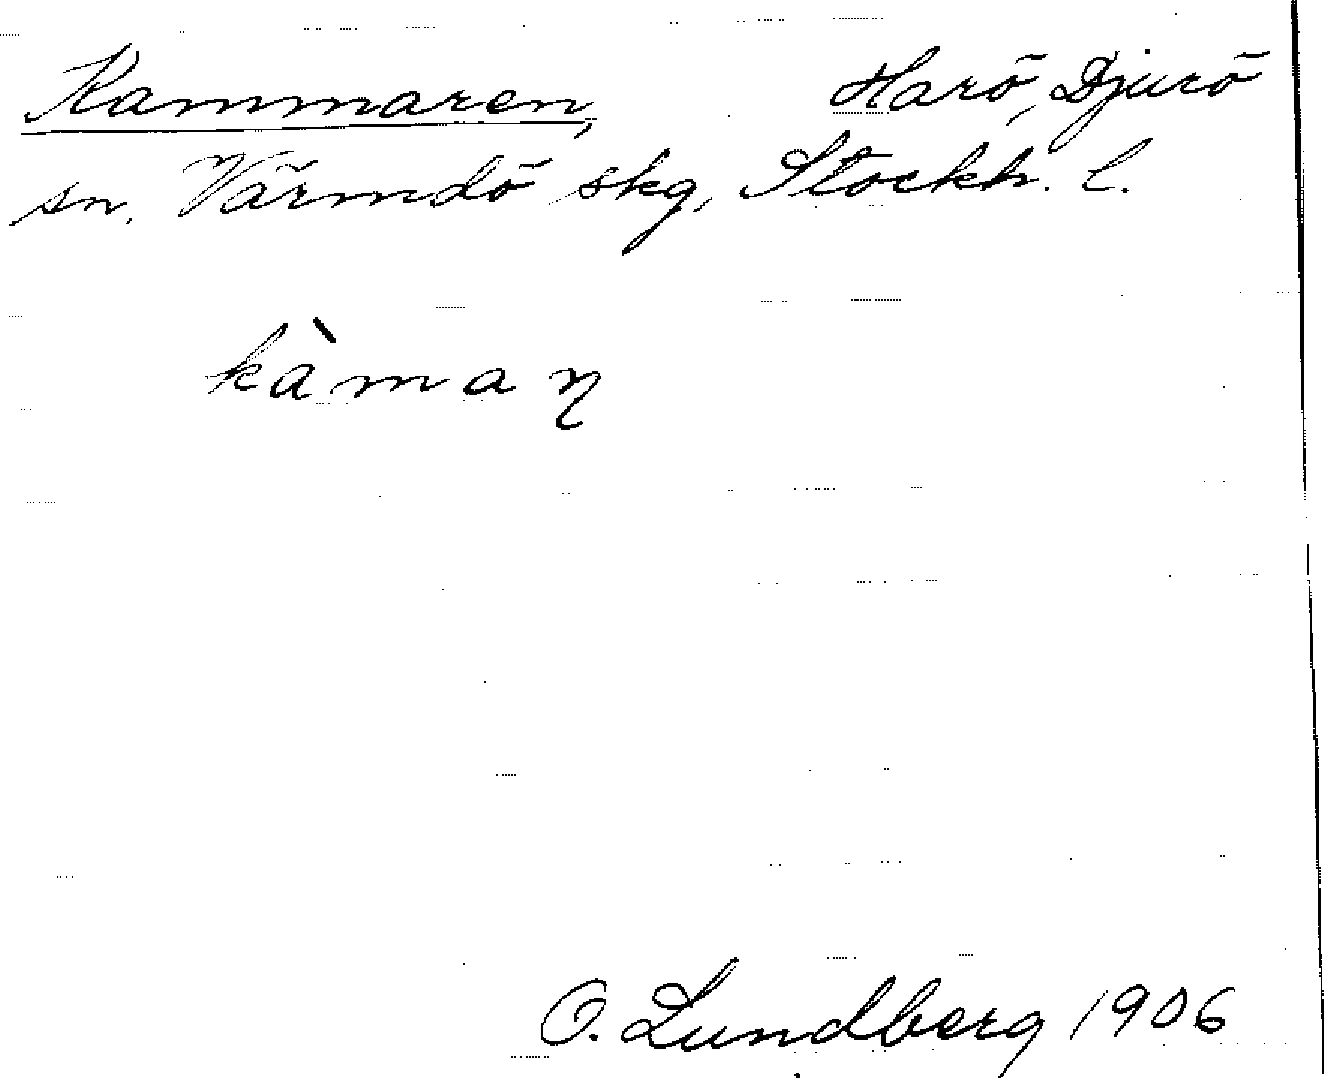 Kammaren, Harö, Djurö
sn. Värmdö skg, Stockh. l.
kàmaɳ
O. Lundberg 1906